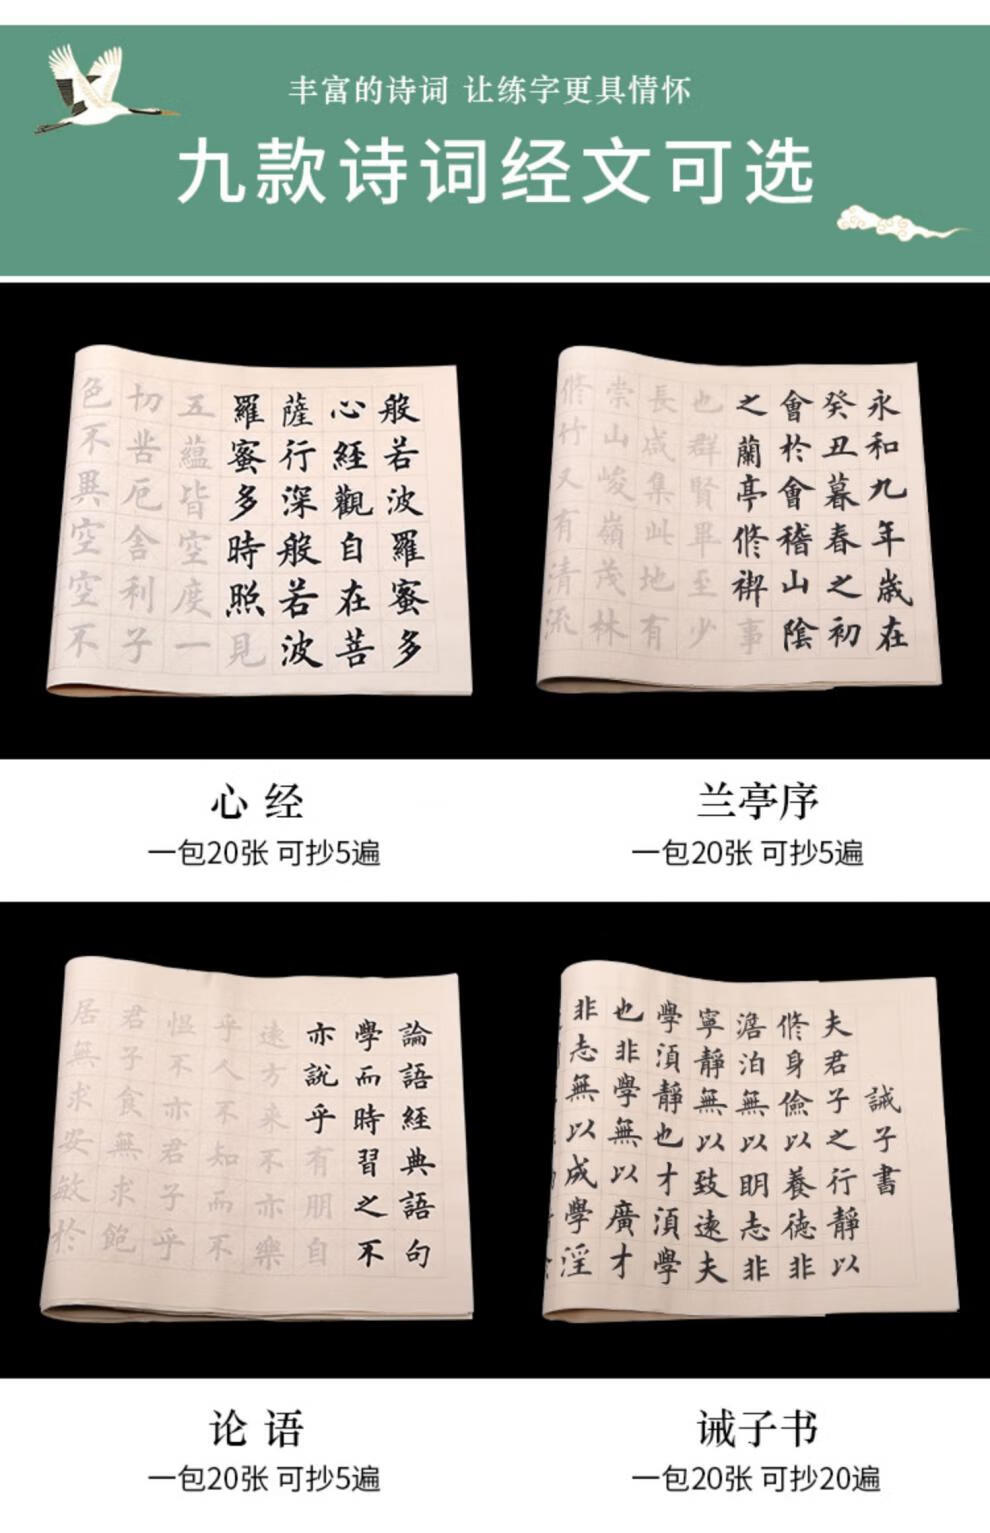 丰富的诗词 让练字更具情怀
九款诗词经文可选
般若波羅蜜多
心經觀自在菩
薩行深般若波
羅蜜多時照見
五蘊皆空度一
切苦厄舍利子
色不異空空不
永和九年歲在
癸丑暮春之初
會於會稽山陰
之蘭亭修禊事
也群賢畢至少
長咸集此地有
崇山峻嶺茂林
修竹又有清流
心经
一包20张 可抄5遍
兰亭序
一包20张 可抄5遍
論語經典語句
學而時習之不
亦說乎有朋自
遠方来不亦樂
乎人不知而不
愠不亦君子乎
君子食無求飽
居無求安敏於
誡子書
夫君子之行靜以
修身儉以養德非
澹泊無以明志非
寧靜無以致遠夫
學須靜也才須學
也非學無以廣才
非志無以成學淫
论语
一包20张 可抄5遍
诫子书
一包20张 可抄20遍